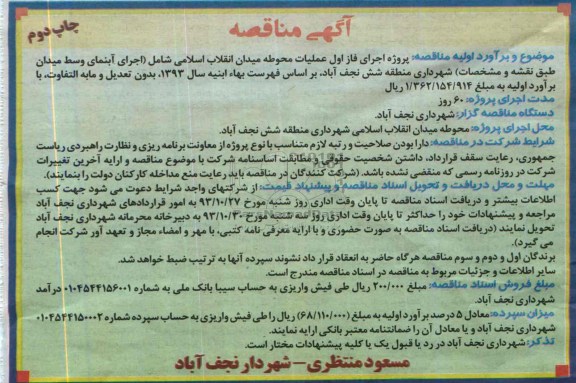 آگهی مناقصه
چاپ دوم
موضوع و برآورد اولیه مناقصه: پروژه اجرای فاز اول عملیات محوطه میدان انقلاب اسلامی شامل (اجرای آبنمای وسط میدان
طبق نقشه و مشخصات) شهرداری منطقه شش نجف آباد، بر اساس فهرست بهاء ابنیه سال ۱۳۹۳، بدون تعدیل و مابه التفاوت، با
برآورد اولیه به مبلغ ۱/۳۶۲/۱۵۴/۹۱۴ ریال
مدت اجرای پروژه: ۶۰ روز
دستگاه مناقصه گزار: شهرداری نجف آباد.
محل اجرای پروژه: محوطه میدان انقلاب اسلامی شهرداری منطقه شش نجف آباد.
شرایط شرکت در مناقصه: دارا بودن صلاحیت و رتبه لازم متناسب با نوع پروژه از معاونت برنامه ریزی و نظارت راهبردی ریاست
جمهوری، رعایت سقف قرارداد، داشتن شخصیت حقوقی و مطابقت اساسنامه شرکت با موضوع مناقصه و ارایه آخرین تغییرات
شرکت در روزنامه رسمی که منقضی نشده باشد. (شرکت کنندگان در مناقصه باید رعایت منع مداخله کارکنان دولت را بنمایند).
مهلت و محل دریافت و تحویل اسناد مناقصه و پیشنهاد قیمت: از شرکتهای واجد شرایط دعوت می شود جهت کسب
اطلاعات بیشتر و دریافت اسناد مناقصه تا پایان وقت اداری روز شنبه مورخ ۹۳/۱۰/۲۷ به امور قراردادهای شهرداری نجف آباد
مراجعه و پیشنهادات خود را حداکثر تا پایان وقت اداری روز سه شنبه مورخ ۹۳/۱۰/۳۰ به دبیرخانه محرمانه شهرداری نجف آباد
تحویل نمایند (دریافت اسناد مناقصه به صورت حضوری و با ارایه معرفی نامه کتبی، با مهر و امضاء مجاز و تعهد آور شرکت انجام
می گیرد).
برندگان اول و دوم و سوم مناقصه هر گاه حاضر به انعقاد قرار داد نشوند سپرده آنها به ترتیب ضبط خواهد شد.
سایر اطلاعات و جزئیات مربوط به مناقصه در اسناد مناقصه مندرج است.
مبلغ فروش اسناد مناقصه: مبلغ ۲۰۰/۰۰۰ ریال طی فیش واریزی به حساب سیبا بانک ملی به شماره ۰۱۰۴۵۴۴۱۵۶۰۰۱ درآمد
شهرداری نجف آباد.
میزان سپرده: معادل ۵ درصد برآورد اولیه به مبلغ (۶۸/۱۱۰/۰۰۰) ریال را طی فیش واریزی به حساب سپرده شماره ۰۱۰۴۵۴۴۱۵۰۰۰۲
شهرداری نجف آباد و یا معادل آن را ضمانتنامه معتبر بانکی ارایه نمایند.
تذکر: شهرداری نجف آباد در رد یا قبول یک یا کلیه پیشنهادات مختار است.
مسعود منتظری - شهردار نجف آباد